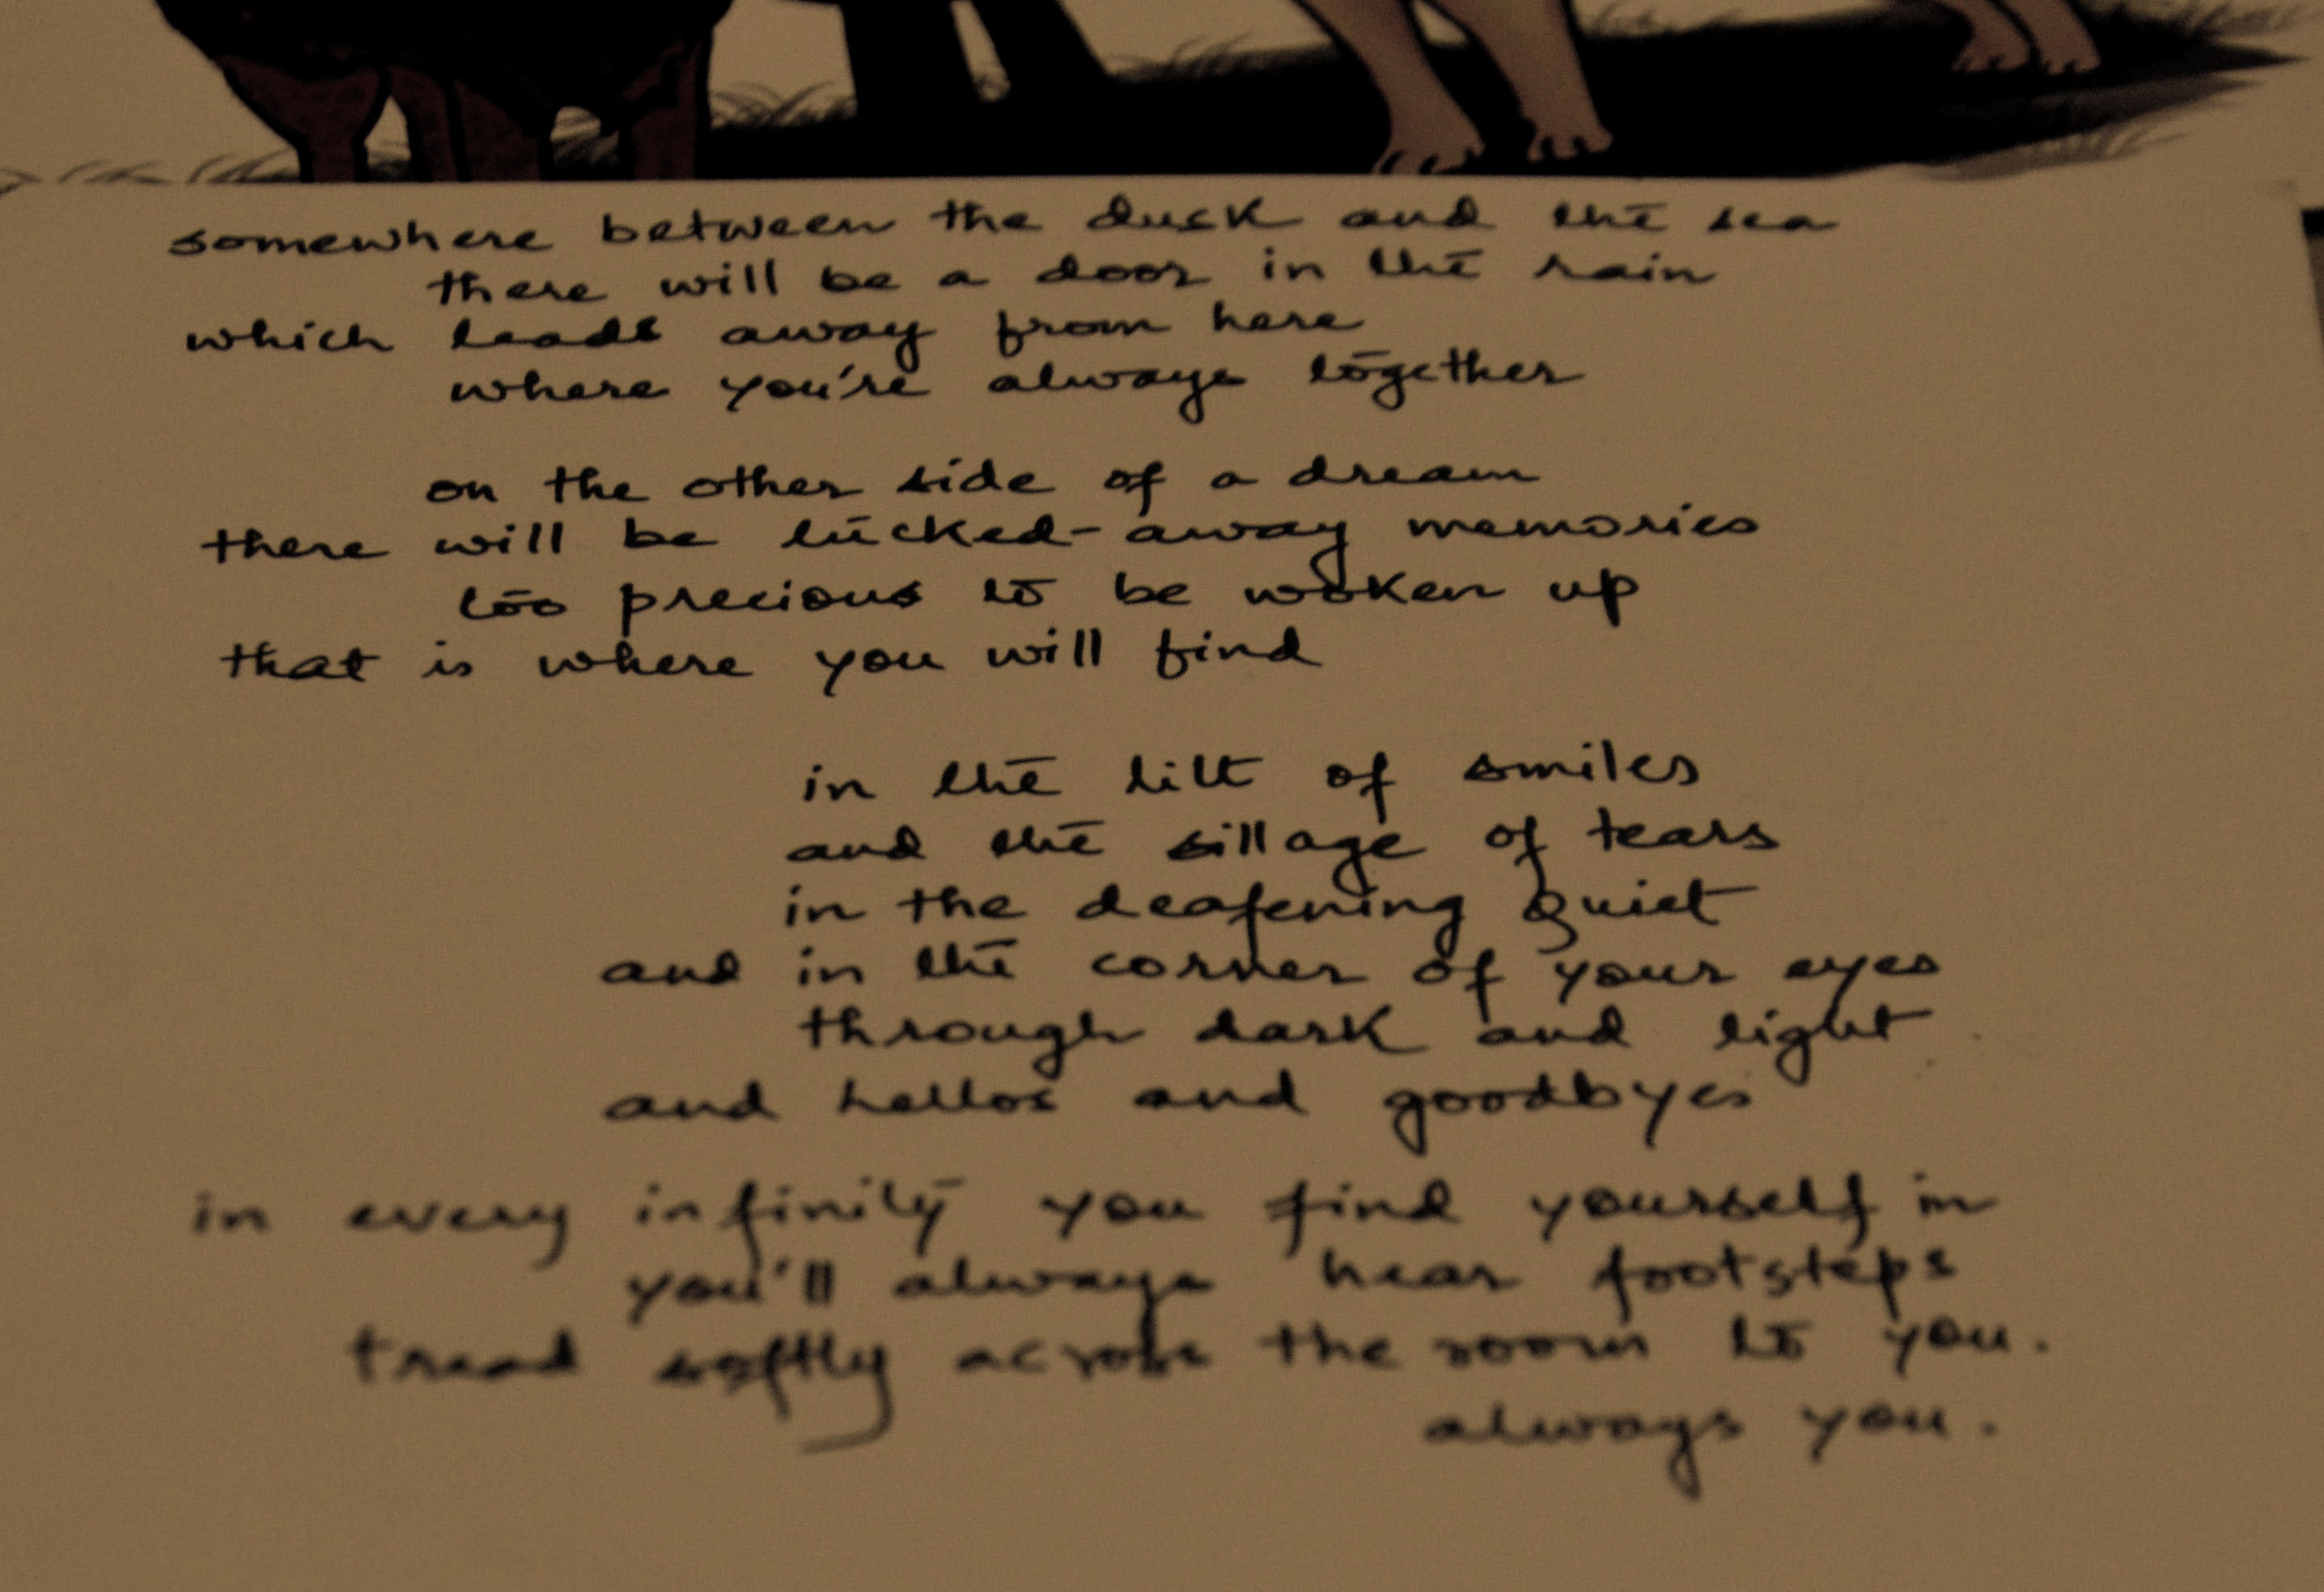 somewhere between the dusk and the sea
there will be a door in the rain
which leads away from here
where you're always together
on the other side of a dream
there will be tucked-away memories
too precious to be woken up
that is where you will find
in the tilt of smiles
and the sillage of tears
in the deafening quiet
and in the corner of your eyes
through dark and light
and hellos and goodbyes
in every infinity you find yourself in
you'll always hear footsteps
tread softly across the room to you.
always you.